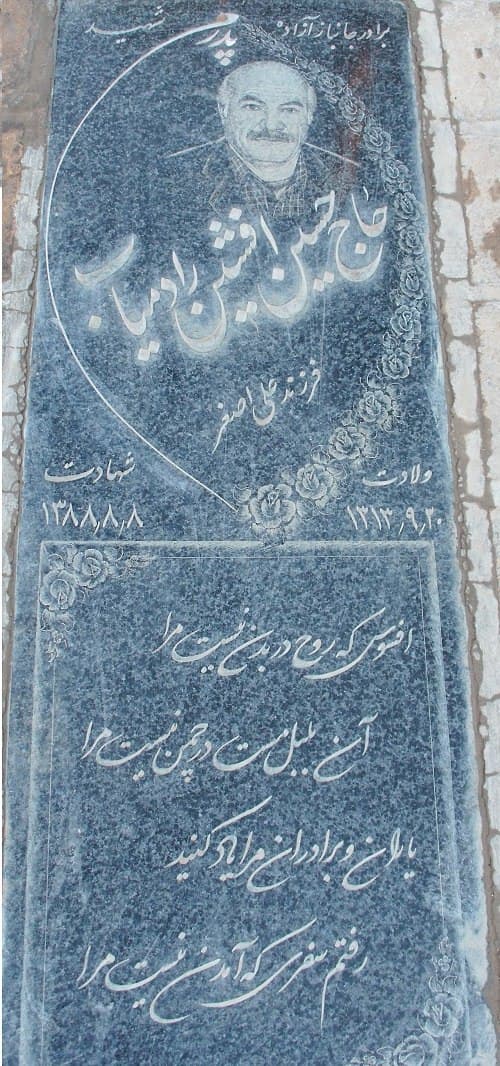 برادر جانباز آزاده شهید
پدرم
حاج حسین افشین رادمیاب
فرزند علی اصغر
ولادت شهادت
۱۳۱۳٫۹٫۲۰ ۱۳۸۸٫۸٫۸
افسوس که روح در بدن نیست مرا
آن بلبل مست در چمن نیست مرا
یاران و برادران مرا یاد کنید
رفتم سفری که آمدن نیست مرا